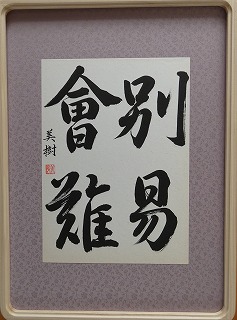 別易
會難
美樹